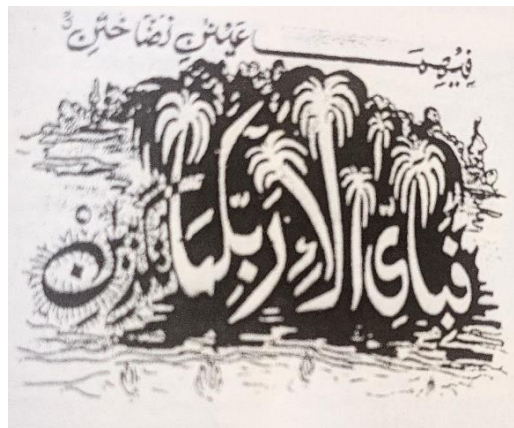 فِيْهِمَا عَيْنٰنِ نَضَّاخَتٰنِ
فَبِاَىِّ اٰلَاءِ رَبِّكُمَا تُكَذِّبٰنِ